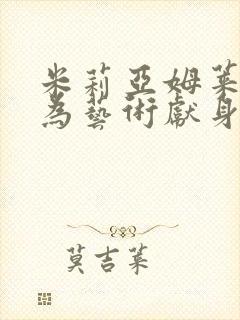 米莉亞姆萊
為藝術獻身
莫吉萊